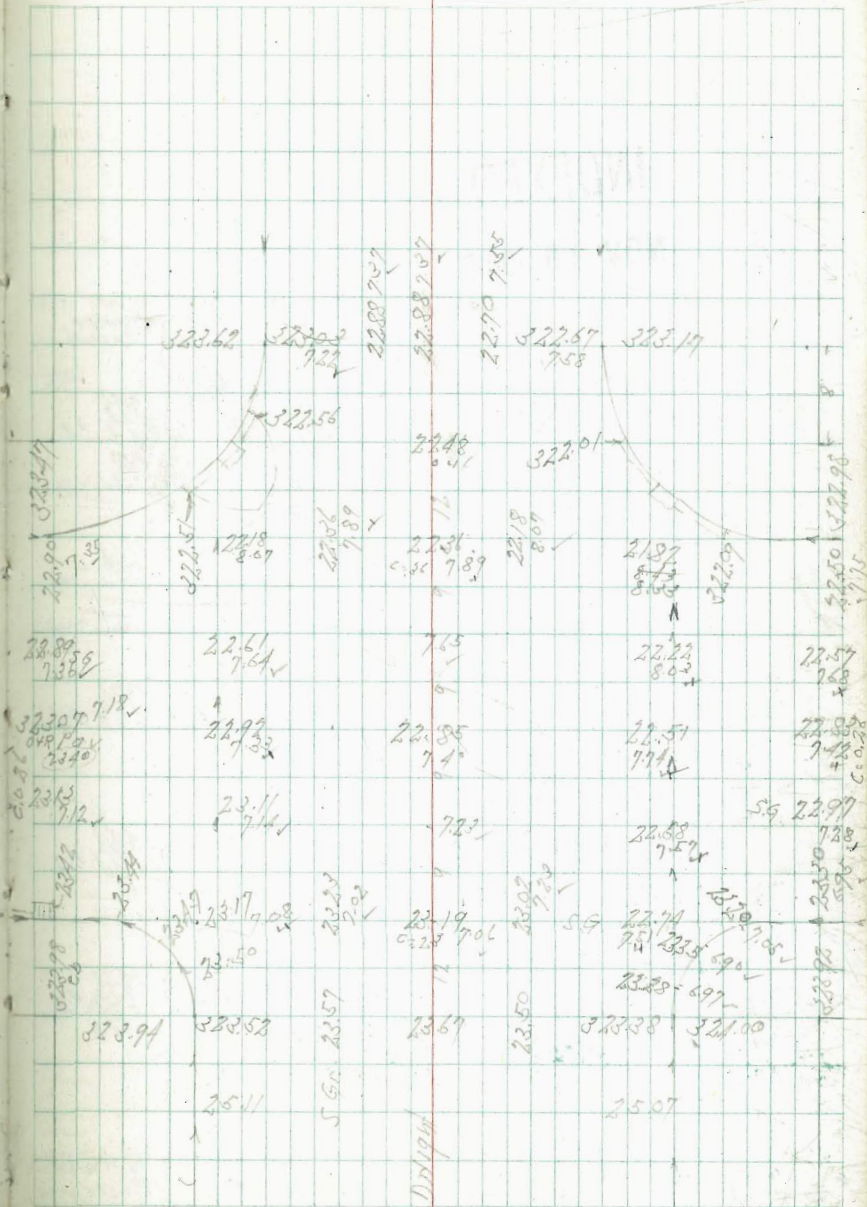 22.88 7.37 ✓
22.88 7.37 ✓
22.70 7.55 ✓
323.62
323.03
7.22 ✓
322.67
7.58
323.17
322.56
22.48
322.01
12
323.47
22.90
7.35
322.51
22.18
8.07
22.36
7.89
22.36
7.89
22.18
8.07 ✓
21.87
322.07
322.98
22.50
7.75
9
22.89
7.36 ✓
22.61
7.64 ✓
7.65
22.22
8.03
22.57
7.68
9
323.07 7.18 ✓
22.92
7.33
22.85
7.40
22.51
7.74
22.83
7.42
C=0.28
9
23.13
7.12 ✓
23.11
7.14 ✓
7.23 ✓
22.68
7.57
S.G. 22.97
7.28
9
23.12
23.44
23.47
23.17
7.08
23.23
7.02 ✓
23.19
7.06 ✓
23.02
7.23 ✓
S.G. 22.74
7.51
23.20
7.05 ✓
23.30
6.95
323.98
23.50
23.35
6.90 ✓
23.28 = 6.97 ✓
323.92
12
323.94
323.52
S Gr. 23.57
23.67
23.50
323.38
324.00
25.11
25.07